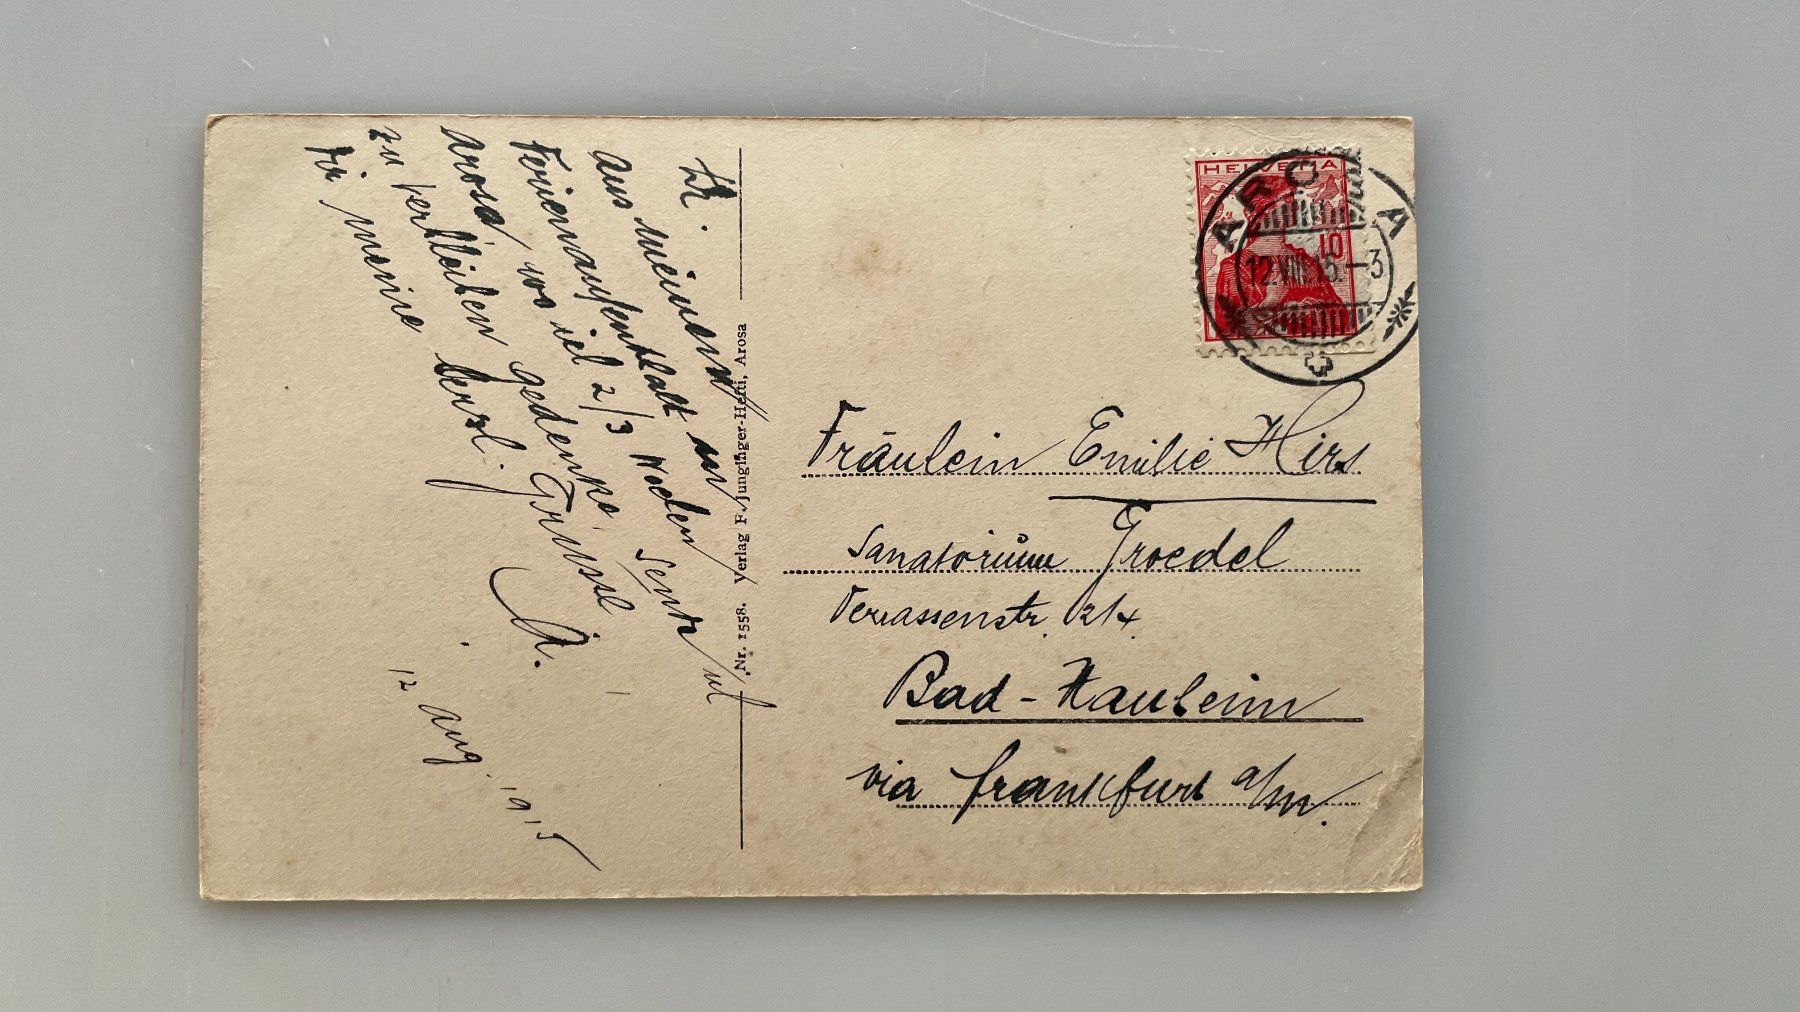 Li.
Aus meinem
Ferienaufenthalt in
Arosa, wo ich 2/3 Wochen
zu verbleiben gedenke, sende ich
Dir meine herzl. Grüsse
A.
12 Aug. 1915
Nr. 1558. Verlag F. Junginger-Hefti, Arosa
HELVETIA
10
AROSA
12.VIII.15.–3
Fräulein Emilie Hirs
Sanatorium Groedel
Terrassenstr. 2/4
Bad-Nauheim
via Frankfurt a/M.